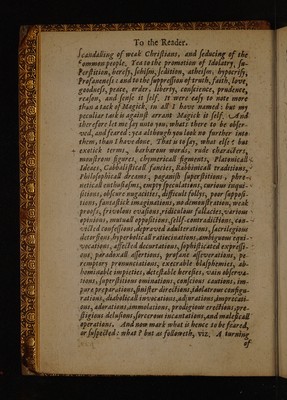 To the Reader.
Scandaling of weak Christians, and seducing of the
Common people. Yea to the promotion of Idolatry, su-
perstition, heresy, schism, sedition, atheism, hypocrisy,
Profaneness: and to the suppression of truth, faith, love,
goodness, peace, order, liberty, conscience, prudence,
reason, and sense it self. It were easy to note more
than a tack of Magick, in all I have named: but my
peculiar task is against arrant Magick it self. And
therefore let me say unto you, what there to be obser-
ved, and feared: yea although you look no further into
them, than I have done. That is to say, what else? but
exotick terms, barbarous words, rude characters,
monstrous figures, chymerical figments, Platonicall
Ideas, Cabbalisticall fancies, Rabbinicall traditions,
Philosophicall dreams, paganish superstitions, phre-
neticall enthusiasms, empty speculations, curious inqui-
sitions, obscure nugacities, difficult follys, poor supposi-
tions, fantastick imaginations, no demonstration, weak
proofs, frivolous evasions, ridiculous fallacies, various
opinions, mutuall oppositions, self-contradictions, con-
victed confessions, depraved adulterations, sacrilegious
detorsions, hyperbolicall ratiocinations, ambiguous equi-
vocations, affected decurtations, sophisticated expressi-
ons, paradoxall assertions, profane asseverations, pe-
remptory pronunciations, execrable blasphemies, ab-
hominable impieties, detestable heresies, vain observa-
tions, superstitious ominations, conscious cautions, im-
pure preparations, sinister directions, idolatrous configu-
rations, diabolicall invocations, adjurations, imprecati-
ons, adorations, immolations, prodigious erections, pre-
stigious delusions, sorcerous incantations, and maleficall
operations. And now mark what is hence to be feared,
or suspected: what? but as followeth, viz. A turning
of